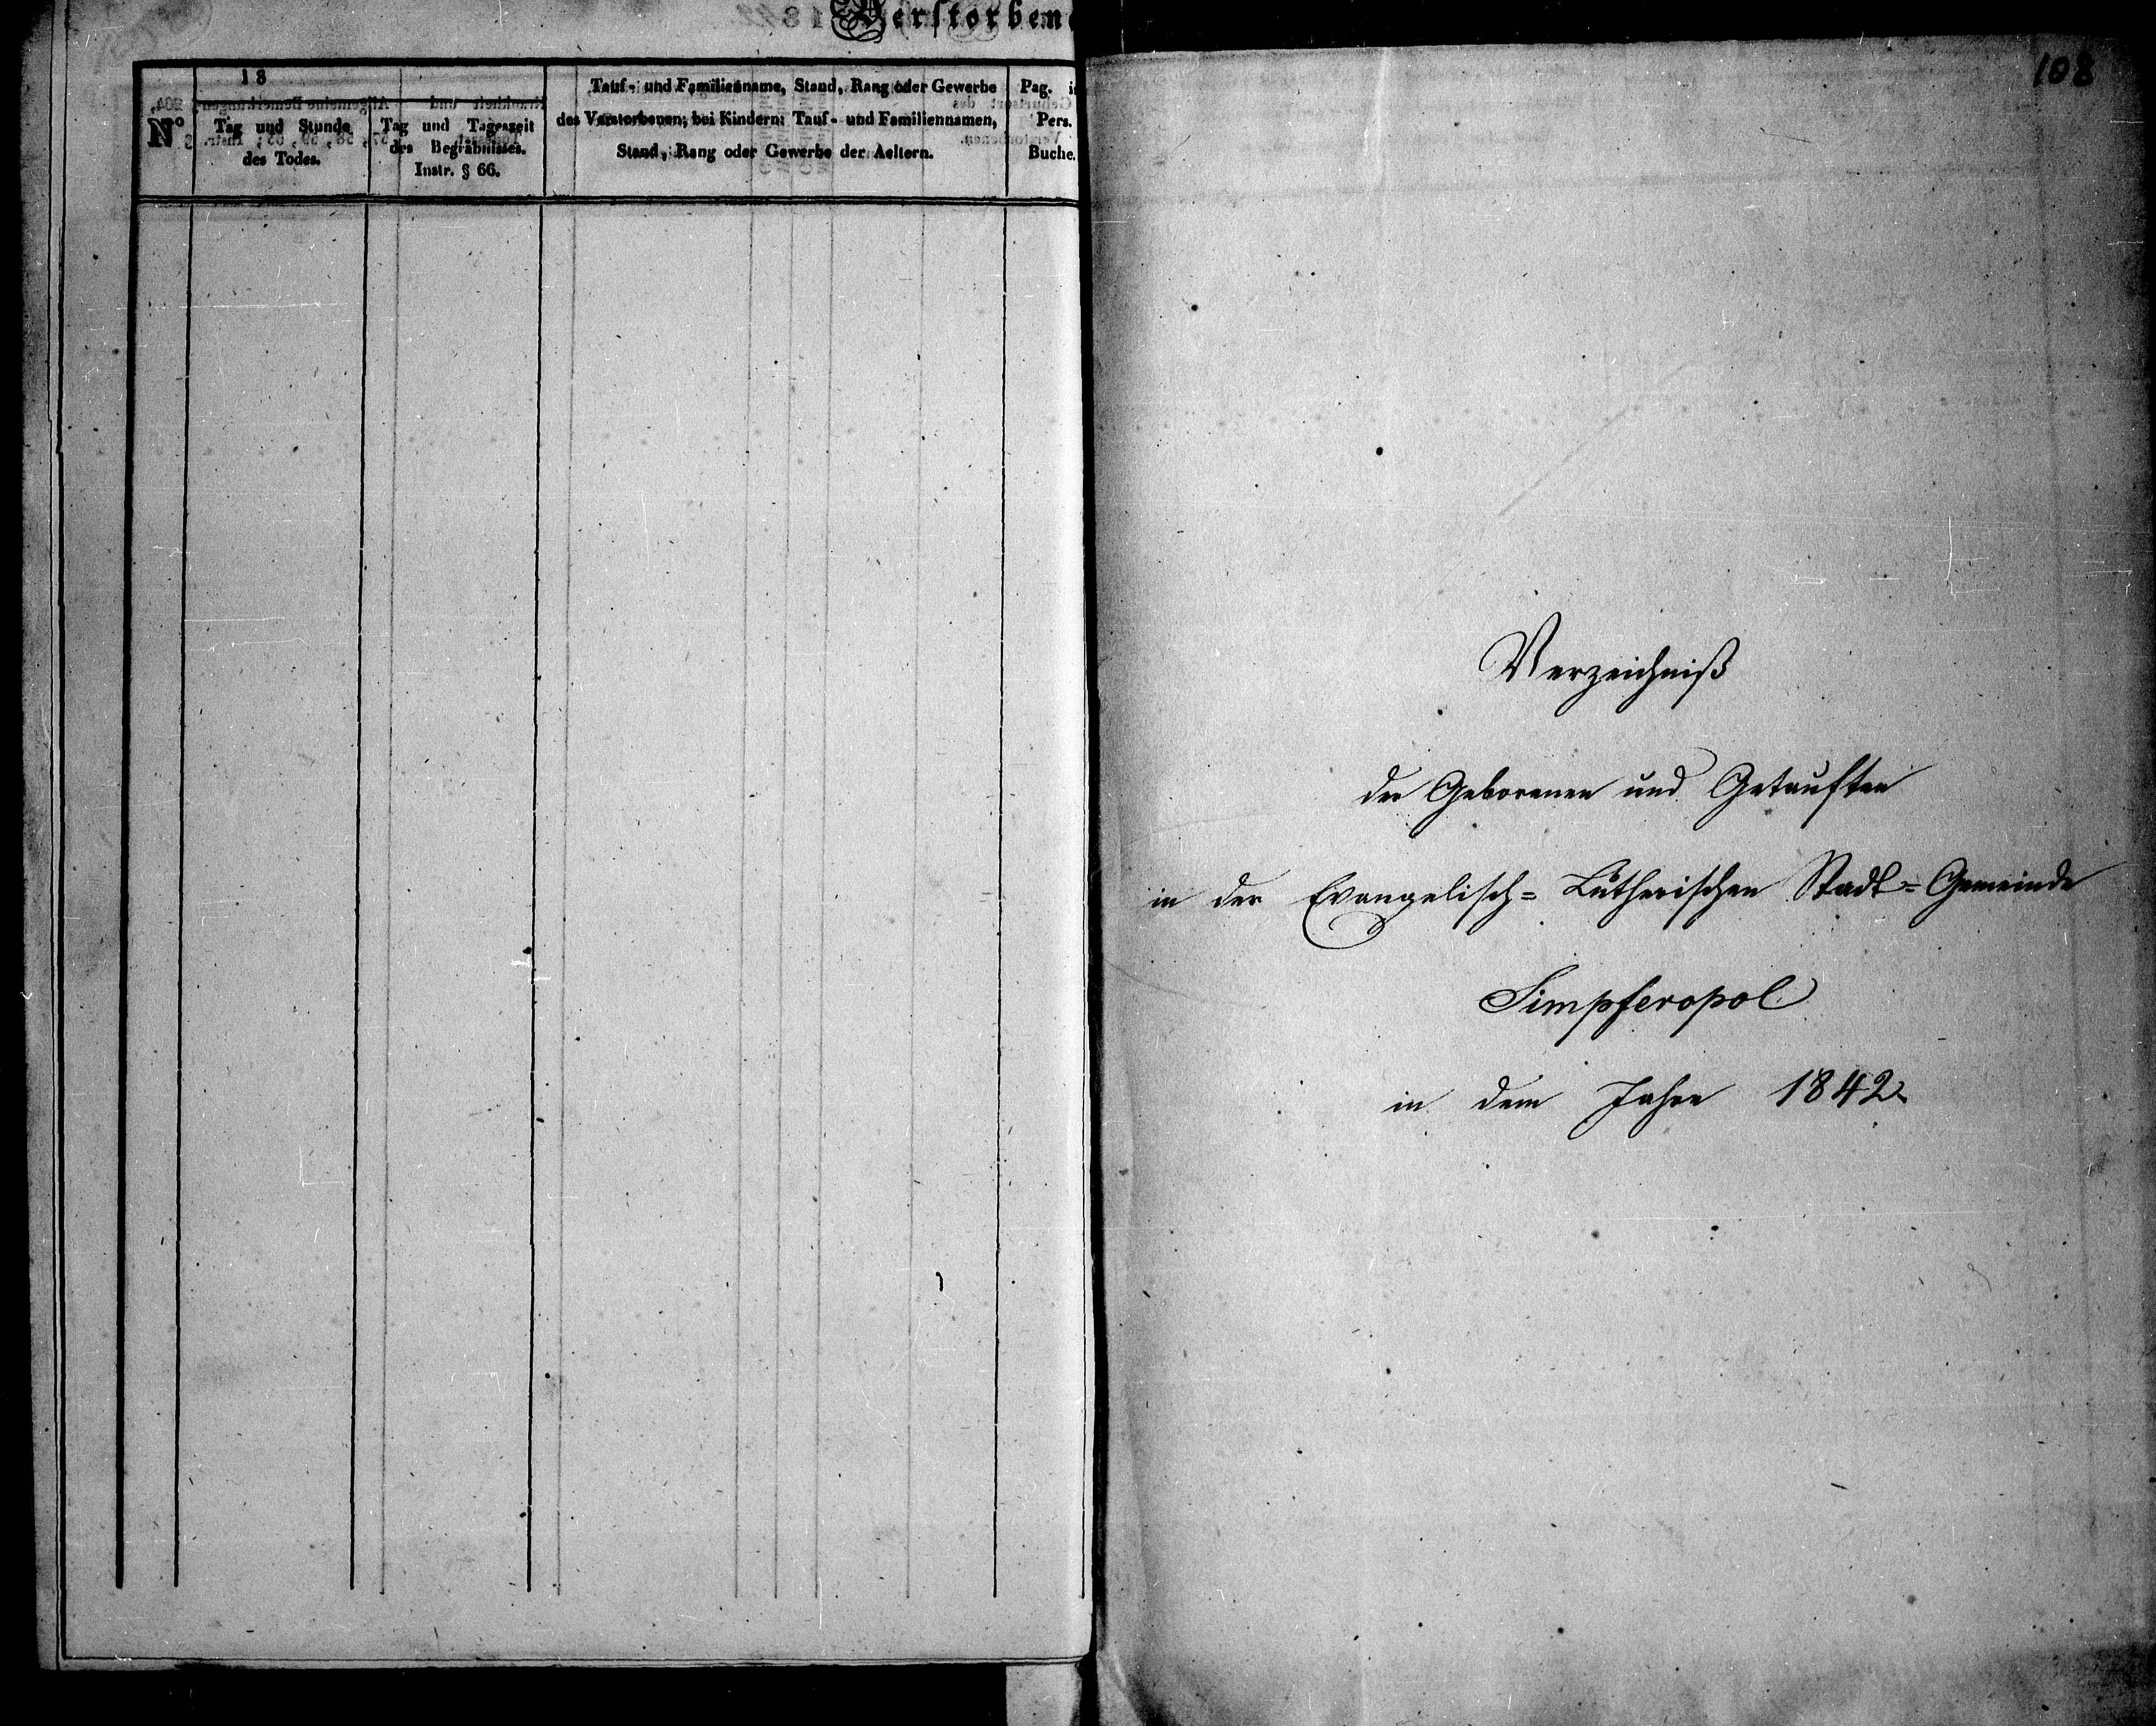 Verstorbene
18
No
Tag und Stunde
des Todes.
Tag und Tageszeit
des Begräbnisses.
Instr. § 66.
Tauf- und Familienname, Stand, Rang oder Gewerbe
des Verstorbenen; bei Kindern: Tauf- und Familiennamen,
Stand, Rang oder Gewerbe der Aeltern.
Pag. i
Pers.
Buche.
108
Verzeichniß
der Geborenen und Getauften
in der Evangelisch= Lutherischen Stadt=Gemeinde
Simpferopol
in dem Jahre 1842.